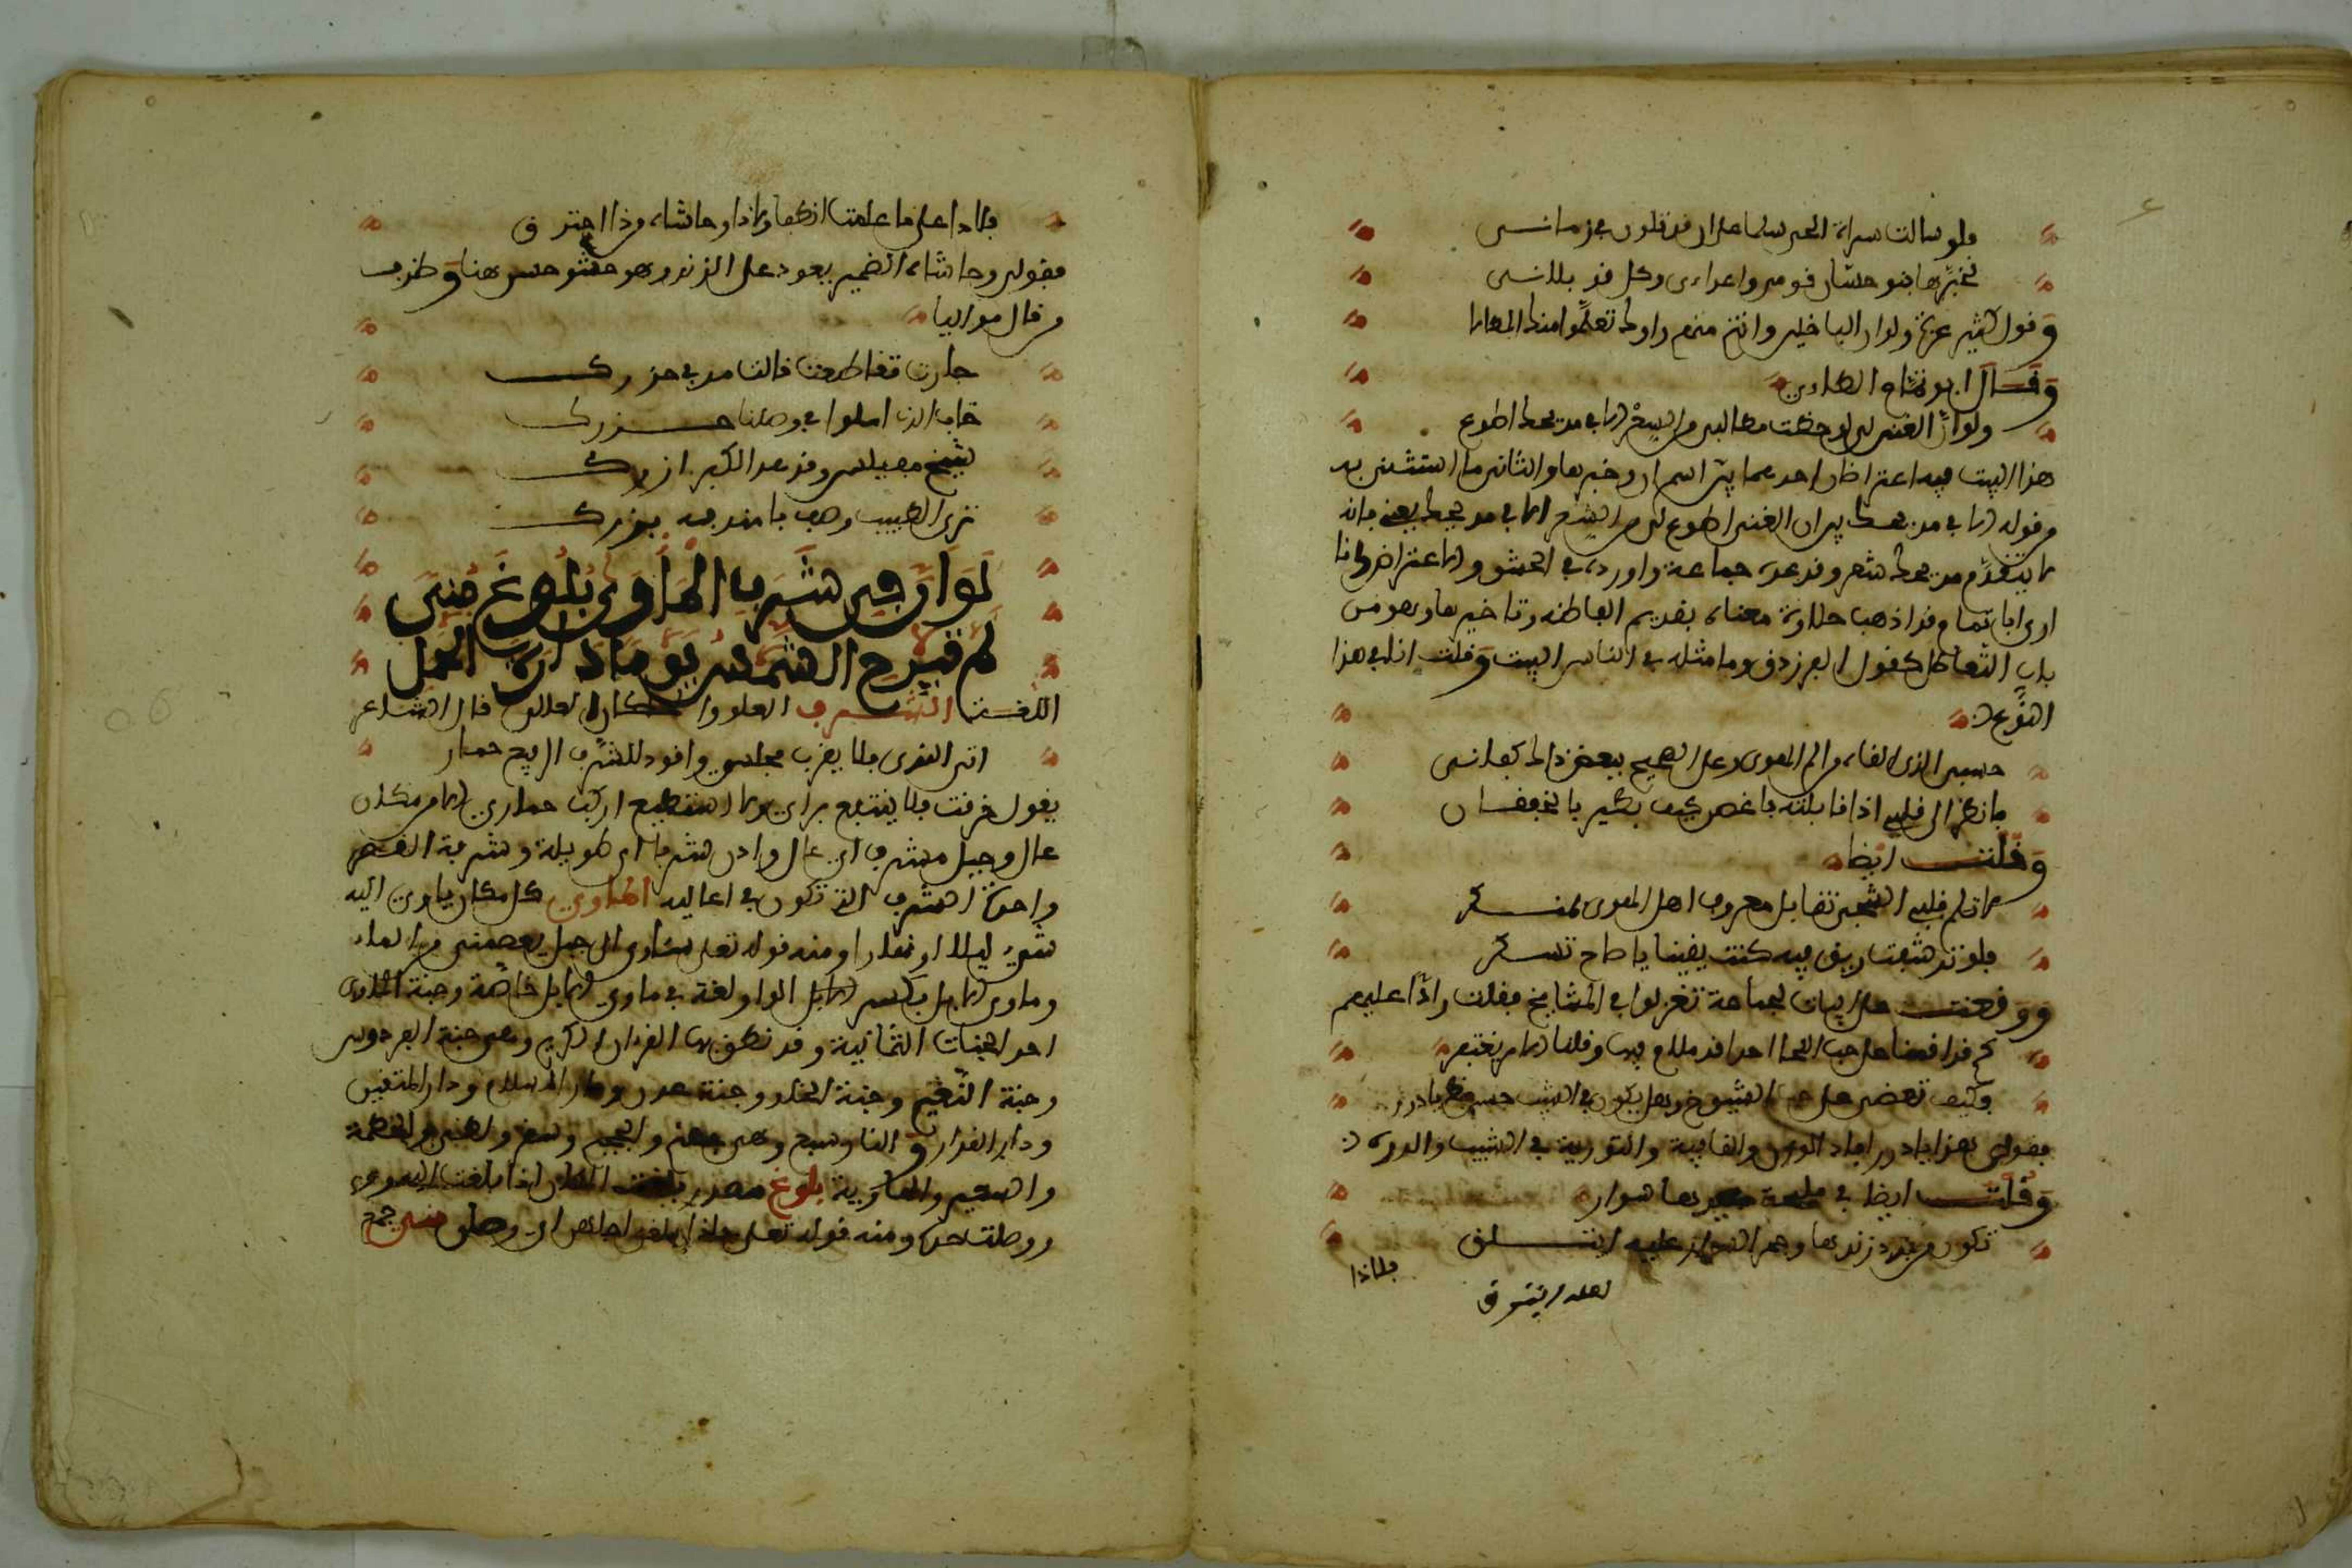 فلو سالت سراة الحي سلما على ان قد تلون بي زماني
لخبرها ذوو حساب قومي واعداءي وكل قد بلاني
وقول كثير عزة ولو ان الباخلين وانت منهم راوك تعلموا منك المطالا
وقال ابو تمام الطاءي
ولو ان الغنى لي لو حظت مطالبي من الشعر الا في مديحك اطوع
هذا البيت فيه اعتراضان احدهما بين اسم ان وخبرها والثاني ما استثنى به
وقوله الا في مديحك
لا يتقدم مديحك شعر وقد عده جماعة واورده في الحشو والاعتراض وانا
ارى ابا تمام قد اذهب حلاوة معناه بتقديم الفاظه وتاخيرها وهو من
باب التعاظل كقول الفرزدق وما مثله في الناس البيت وقلت انا في هذا
النوع
حسبي الذي القاه من الم الهوى وعلى الصحيح ببعض ذاك كفاني
فانظر الى قلبي اذا قابلته يا غصن كيف يطير بالخفقان
وقلت ايضا
لا تلم قلبي الشجي تقابل معروف اهل الهوى بمنكر
فلو ترشفت ريق فيه كنت يقينا يا صاح تسكر
ووقفت على ابيات لجماعة تغزلوا في المشايخ فقلت رادا عليهم
وكيف تعضي على حب الشيوخ وهل يكون في الشيب حسن قط يا درر
فقولي هذا يا درر افاد الوزن والقافية والتورية في الشيب والدرر
وقلت ايضا في مليحة بيدها سوار
تكون من برد زندها وهج النار عليه ائتلق
لعله اشرق
فلاذا
فلا ذا على ما علمت انطفا ولا ذا وحاشاه من ذا احترق
فقولي وحاشاه الضمير يعود على الزند وهو حشو حسن هنا وظريف
وقال مواليا
جارت فقاطعت قالت مر في حزرك
خاب الذي املوا في وصلنا حزرك
شيخ مفيلس وقد عد الكبر ازرك
ترى الطبيب وهب يا مندبه بوزرك
لو ان في شرف الماوى بلوغ منى
لم تبرح الشمس يوما دارة الحمل
اللغة الشرف العلو والمكان العالي قال الشاعر
اتي الندي فلا يقرب مجلسي واقود للشرف الرفيع حماري
يقول خرفت فلا ينتفع برايي ولا استطيع اركب حماري الا من مكان
عال وجبل مشرف اي عال واذن شرفاء اي طويلة وشرفة القصر
واحدة الشرف التي تكون في اعاليه الماوى كل مكان ياوي اليه
شيء ليلا او نهارا ومنه قوله تعالى ساوي الى جبل يعصمني من الماء
وماوي الابل بكسر الواو لغة في ماوى الابل خاصة وجنة الماوى
احد الجنات الثمانية وقد نطق بها القران الكريم وهي جنة الفردوس
وجنة النعيم وجنة الخلد وجنة عدن ودار السلام ودار المتقين
ودار القرار والنار سبع وهي جهنم والجحيم وسقر ولظى والحطمة
والسعير والهاوية بلوغ مصدر بلغت المكان اذا بلغت اليه
ووصلت حده ومنه قوله تعالى فاذا بلغن اجلهن اي وصلن منى جمع